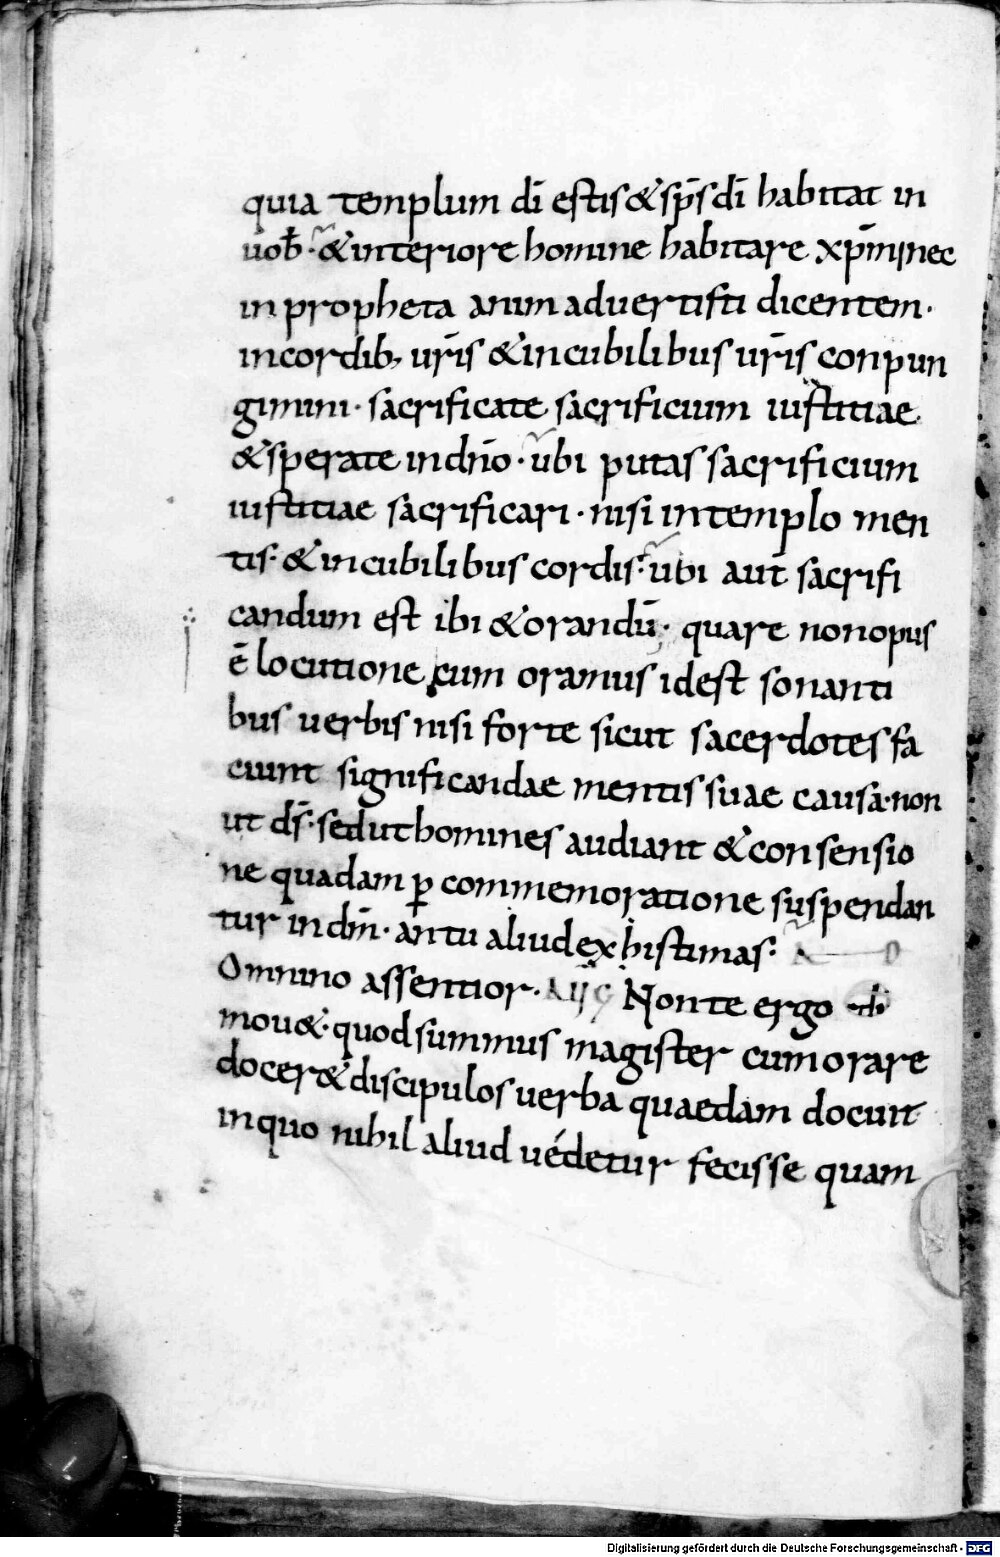 quia templum dī estis & sp̄s dī habitat in
uob̄· & interiore homine habitare xp̄m· nec
in propheta animaduertisti dicentem·
in cordib, ur̄is & in cubilibus ur̄is conpun
gimini· sacrificate sacrificium iustitiae
& sperate in dn̄o· ubi putas sacrificium
iustitiae sacrificari· nisi in templo men
tis· & in cubilibus cordis· ubi aut̄ sacrifi
candum est ibi & orandū· quare non opus
ē locutione cum oramus id est sonanti
bus uerbis nisi forte sicut sacerdotes fa
ciunt significandae mentis suae causa· non
ut ds̄· sed ut homines audiant & consensio
ne quadam ꝑ commemoratione suspendan
tur in dm̄· an tu aliud exhistimas·
Omnino assentior· Non te ergo
mou&· quod summus magister cum orare
docer& discipulos uerba quaedam docuit
in quo nihil aliud uedetur fecisse quam
Digitalisierung gefördert durch die Deutsche Forschungsgemeinschaft - DFG